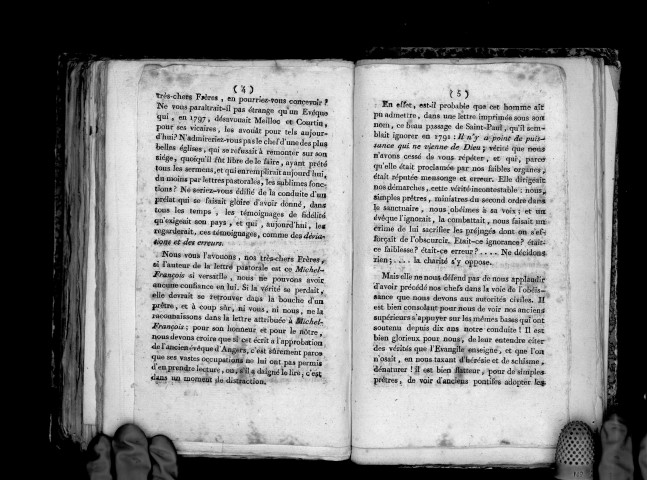 (4)
très-chers Frères, en pourriez-vous concevoir ?
Ne vous paraîtrait-il pas étrange qu'un Evêque
qui, en 1797, désavouait Meilloc et Courtin,
pour ses vicaires, les avouât pour tels aujour-
d'hui? N'admireriez-vous pas le chef d'une des plus
belles églises, qui se refusait à remonter sur son
siége, quoiqu'il fût libre de le faire, ayant prêté
tous les sermens, et qui en remplirait aujourd'hui,
du moins par lettres pastorales, les sublimes fonc-
tions? Ne seriez-vous édifié de la conduite d'un
prélat qui se faisait gloire d'avoir donné, dans
tous les temps, les témoignages de fidélité
qu'exigeait son pays, et qui, aujourd'hui, les
regarderait, ces témoignages, comme des dévia-
tions et des erreurs.
Nous vous l'avouons, nos très-chers Frères,
si l'auteur de la lettre pastorale est ce Michel-
François si versatile, nous ne pouvons avoir
aucune confiance en lui. Si la vérité se perdait,
elle devrait se retrouver dans la bouche d'un
prêtre, et à coup sûr, ni vous, ni nous, ne la
reconnaissons dans la lettre attribuée à Michel-
François ; pour son honneur et pour le nôtre,
nous devons croire que si cet écrit a l'approbation
de l'ancien évêque d'Angers, c'est sûrement parce
que ses vastes occupations ne lui ont pas permis
d'en prendre lecture, ou, s'il a daigné le lire, c'est
dans un moment de distraction.
(5)
En effet, est-il probable que cet homme aît
pu admettre, dans une lettre imprimée sous son
nom, ce beau passage de Saint-Paul, qu'il sem-
blait ignorer en 1791 : Il n'y a point de puis-
sance qui ne vienne de Dieu ; vérité que nous
n'avons cessé de vous répéter, et qui, parce
qu'elle était proclamée par nos faibles organes,
était réputée mensonge et erreur. Elle dirigeait
nos démarches, cette vérité incontestable : nous,
simples prêtres, ministres du second ordre dans
le sanctuaire, nous obéimes à sa voix ; et un
évêque l'ignorait, la combattait, nous faisait un
crime de lui sacrifier les préjugés dont on s'ef-
forçait de l'obscurcir. Etait-ce ignorance? était-
ce faiblesse? était-ce erreur?.... Ne décidons
rien ;.... la charité s'y oppose.
Mais elle ne nous défend pas de nous applaudir
d'avoir précédé nos chefs dans la voie de l'obéis-
sance que nous devons aux autorités civiles. Il
est bien consolant pour nous de voir nos anciens
supérieurs s'appuyer sur les mêmes bases qui ont
soutenu depuis dix ans notre conduite ! Il est
bien glorieux pour nous, de leur entendre citer
des vérités que l'Evangile enseigne, et que l'on
n'osait, en nous taxant d'hérésie et de schisme,
dénaturer ! il est bien flatteur, pour de simples
prêtres, de voir d'anciens pontifes adopter les